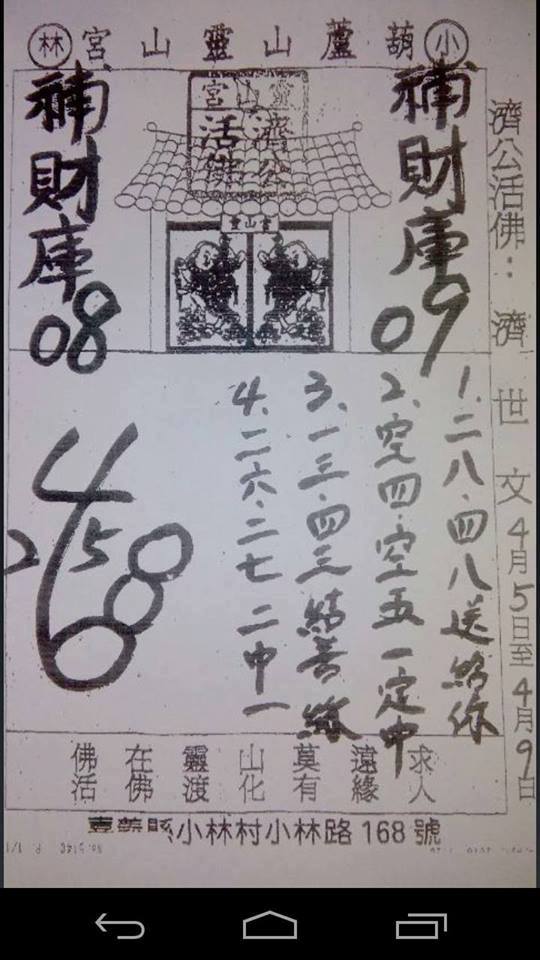 小葫蘆山靈山宮林
濟公活佛:濟世文4月5日至4月9日
靈山宮
濟公
活佛
靈山宮
補財庫
09
補財庫
08
1、二八.四八送給你
2、空四.空五一定中
3、一三.四三結善緣
4、二六.二七二中一
佛在靈山莫遠求
活佛渡化有緣人
嘉義縣小林村小林路168號